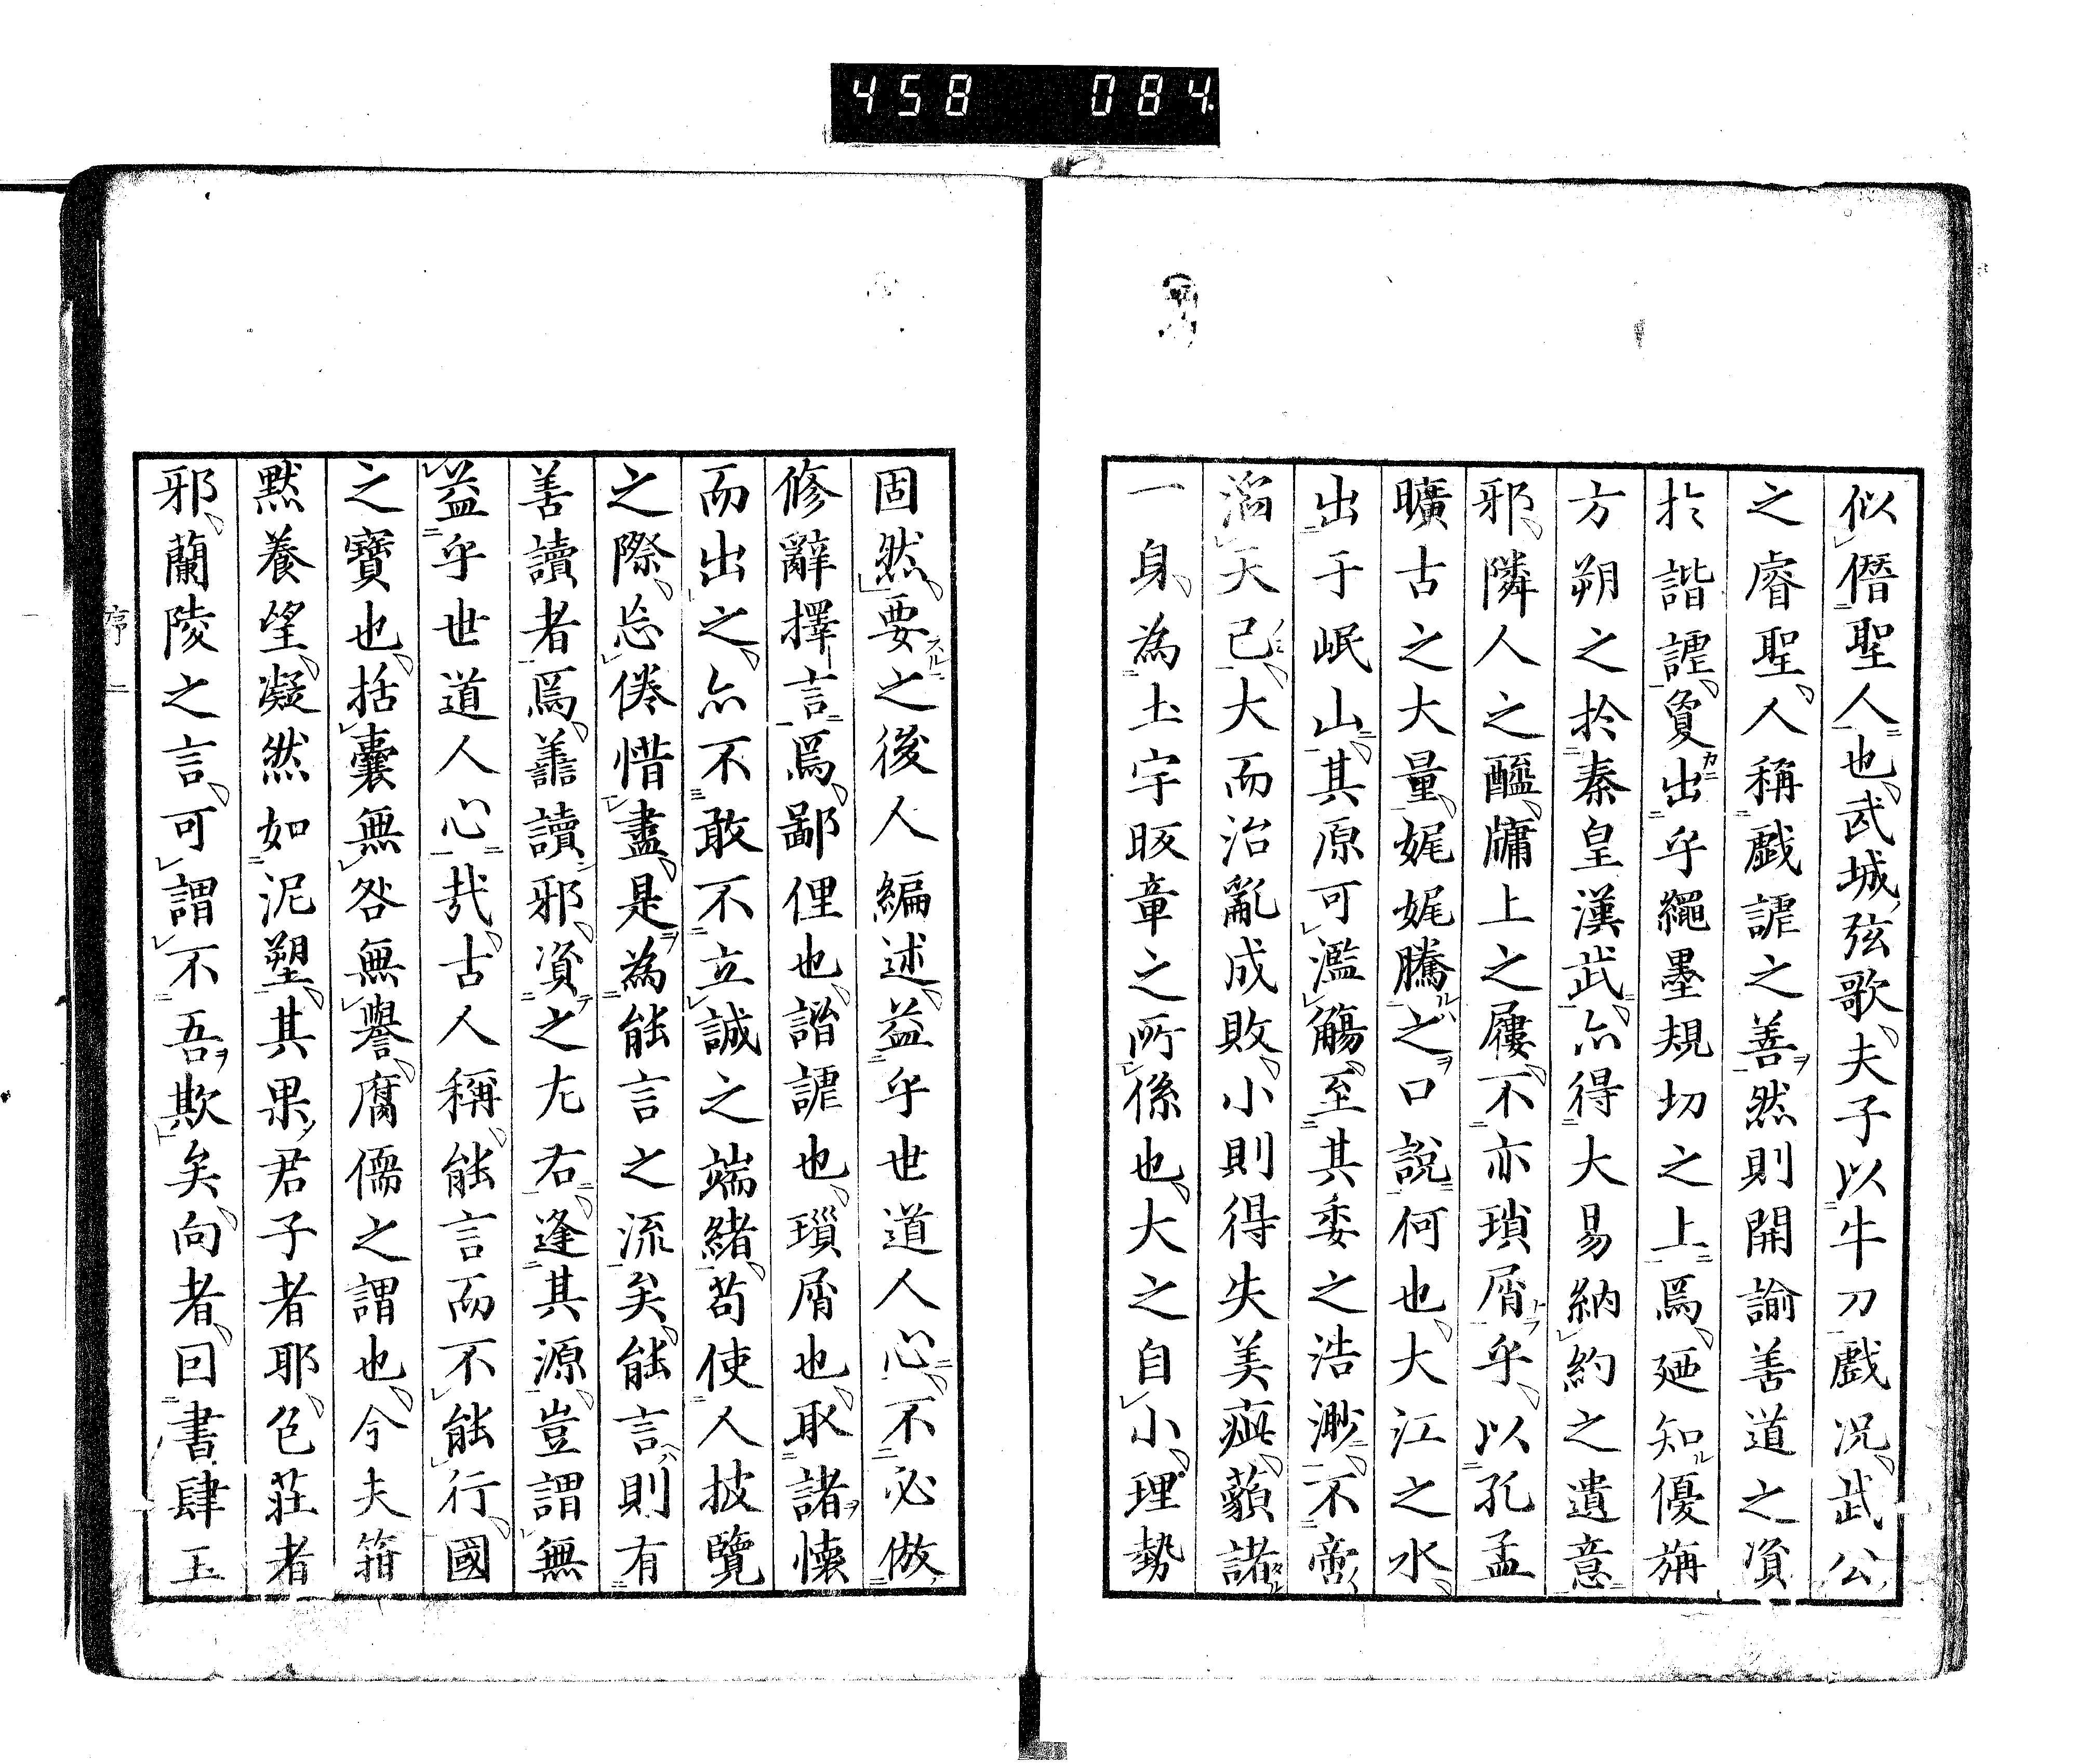 458 084
似僭聖人也武城弦歌夫子以牛刀戲況武公
之睿聖人稱戲謔之善然則開諭善道之資
於諧謔負出乎繩墨規切之上焉廼知優旃
方朔之於秦皇漢武亦得大易納約之遺意
邪隣人之醯牗上之屨不亦瑣屑乎以孔孟
曠古之大量娓娓騰之口說何也大江之水
出于岷山其原可濫觴至其委之浩渺不啻
滔天已大而治亂成敗小則得失美疵纇諸
一身為土宇昄章之所係也大之自小理勢
固然要之後人編述益乎世道人心不必倣
修辭擇言焉鄙俚也諧謔也瑣屑也取諸懷
而出之亦不敢不立誠之端緒苟使人披覽
之際忘倦惜盡是為能言之流矣能言則有
善讀者焉譱讀邪資之左右逢其源豈謂無
益乎世道人心哉古人稱能言而不能行國
之寶也括囊無咎無譽腐儒之謂也今夫箝
默養望凝然如泥塑其果君子者耶色莊者
邪蘭陵之言可謂不吾欺矣向者回書肆玉
序 二